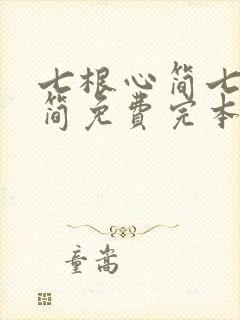 七根心简七
简免费完本
童嵩